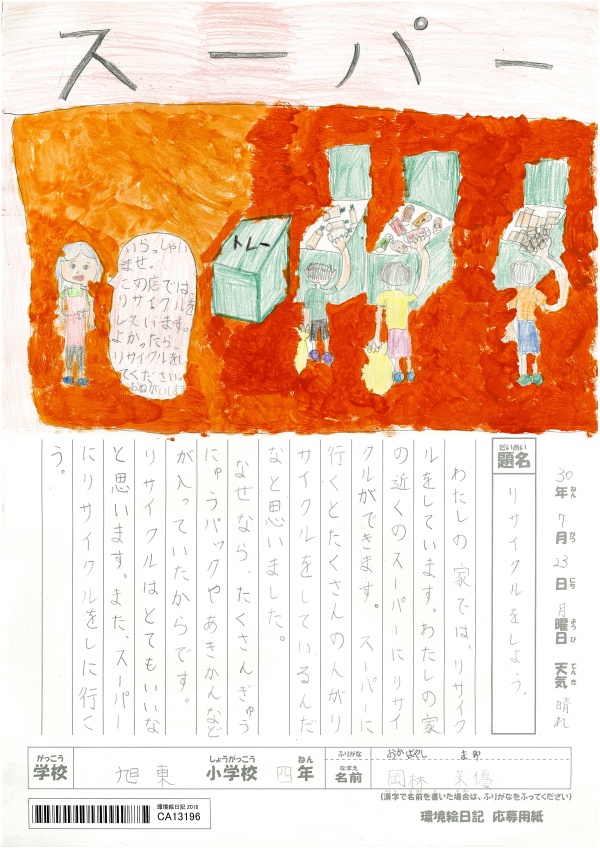 スーパー
いらっしゃい
ませ。
この店では、
リサイクルを
しています。
よかったら、
リサイクルをし
てください。
おねがいします
トレー
30年ねん 7月がつ 23日にち 月曜日ようび 天気てんき 晴れ
題名だいめい リサイクルをしよう。
わたしの家では、リサイク
ルをしています。わたしの家
の近くのスーパーにリサイ
クルができます。スーパーに
行くとたくさんの人がリ
サイクルをしているんだ
なと思いました。
なぜなら、たくさんぎゅう
にゅうパックやあきかんなど
が入っていたからです。
リサイクルはとてもいいな
と思います。また、スーパー
にリサイクルをしに行く
う。
がっこう しょうがっこう ねん ふりがな おかばやし まゆ
学校 旭東 小学校 四年 なまえ 名前 岡林 茉優
(漢字で名前を書いた場合は、ふりがなをふってください)
環境絵日記 2018
CA13196
環境絵日記 応募用紙